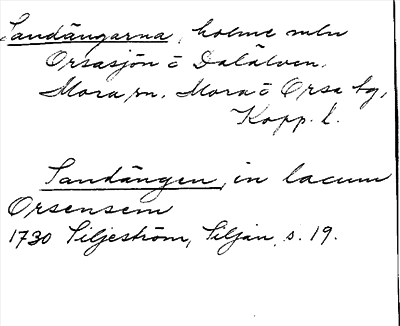 Sandängarna, holme mln
Orsasjön o Dalälven.
Mora sn, Mora o Orsa tg,
Kopp. l.
Sandängen, in lacum
Orsensem
1730 Siljeström, Siljan, s. 19.